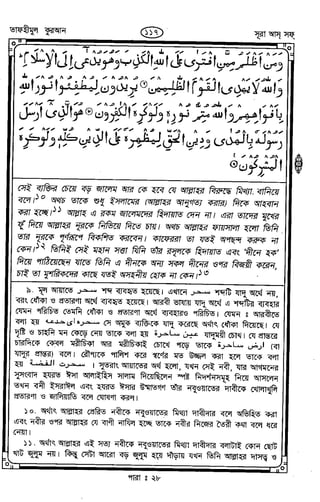 তাফহীমুল কুরআন
১১৯
সূরা আস্ সফ্
وَمَنْ أَظْلَمُ مِمَّنِ افْتَرَىٰ عَلَى اللَّهِ الْكَذِبَ وَهُوَ يُدْعَىٰ إِلَى الْإِسْلَامِ
وَاللَّهُ لَا يَهْدِي الْقَوْمَ الظَّالِمِينَ ۝ يُرِيدُونَ لِيُطْفِئُوا نُورَ اللَّهِ
بِأَفْوَاهِهِمْ وَاللَّهُ مُتِمُّ نُورِهِ وَلَوْ كَرِهَ الْكَافِرُونَ ۝ هُوَ الَّذِي أَرْسَلَ
رَسُولَهُ بِالْهُدَىٰ وَدِينِ الْحَقِّ لِيُظْهِرَهُ عَلَى الدِّينِ كُلِّهِ وَلَوْ كَرِهَ
الْمُشْرِكُونَ ۝
সেই ব্যক্তির চেয়ে বড় জালেম আর কে হবে যে আল্লাহর বিরুদ্ধে মিথ্যা বানিয়ে
বলে।১০ অথচ তাকে শুধু ইসলামের (আল্লাহর আনুগত্য করার) দিকে আহবান
করা হচ্ছে।১১ আল্লাহ এ রকম জালেমদের হিদায়াত দেন না। এরা তাদের মুখের
ফুঁ দিয়ে আল্লাহর নূরকে নিভিয়ে দিতে চায়। অথচ আল্লাহর ফায়সালা হলো তিনি
তার নূরকে পূর্ণরূপে বিকশিত করবেন। কাফেররা তা যতই অপছন্দ করুক না
কেন।১২ তিনিই সেই মহান সত্তা যিনি তাঁর রসূলকে হিদায়াত এবং 'দীনে হক'
দিয়ে পাঠিয়েছেন যাতে তিনি এ দীনকে অন্য সকল দীনের ওপর বিজয়ী করেন,
চাই তা মুশরিকদের কাছে যতই অসহনীয় হোক না কেন।১৩
৯. মূল আয়াতে سحر শব্দ ব্যবহৃত হয়েছে। এখানে سحر শব্দটি যাদু অর্থে নয়,
বরং ধোঁকা ও প্রতারণা অর্থে ব্যবহৃত হয়েছে। আরবী ভাষায় যাদু অর্থে এ শব্দটির ব্যবহার
যেমন পরিচিত তেমনি ধোঁকা ও প্রতারণা অর্থে ব্যবহারও পরিচিত। যেমন : আরবীতে
বলা হয় سحره اى خدعه সে অমুক ব্যক্তিকে যাদু করেছে অর্থাৎ ধোঁকা দিয়েছে। যে
দৃষ্টি ও চাহনি মন কেড়ে নেয় তাকে বলা হয় عين ساحرة যাদুময়ী চোখ। যে প্রান্তরে
চারদিকে কেবল মরীচিকা আর মরীচিকাই চোখে পড়ে তাকে ارض ساحرة
যাদুর প্রান্তর) বলে। রৌপ্যকে পালিশ করে স্বর্ণের মত উজ্জ্বল করা হলে তাকে বলা
হয় سحرت الفضة। সুতরাং আয়াতের অর্থ হলো, যখন সেই নবী, যার আগমনের
সুসংবাদ হযরত ঈসা আলাইহিস সালাম দিয়েছিলেন স্পষ্ট নিদর্শনসমূহ নিয়ে আসলেন
তখন বনী ইসরাঈল এবং হযরত ঈসার উম্মতগণ তাঁর নবুওয়াতের দাবীকে খোলাখুলি
প্রতারণা ও জালিয়াতি বলে ঘোষণা করল।
১০. অর্থাৎ আল্লাহর প্রেরিত নবীকে নবুওয়াতের মিথ্যা দাবীদার বলে অভিহিত করা
এবং নবীর ওপর আল্লাহর যে বাণী নাযিল হচ্ছে তাকে নবীর নিজের তৈরী কথা বলে ধরে
নেয়া।
১১. অর্থাৎ আল্লাহর এই সত্য নবীকে নবুওয়াতের মিথ্যা দাবীদার বলাটাই কোন ছোট
খাট জুলুম নয়। কিন্তু সেটা আরো বড় জুলুম হয়ে দাঁড়ায় যখন তিনি আল্লাহর দাসত্ব ও
পারা : ২৮